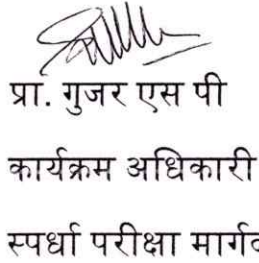 प्रा. गुजर एस पी
कार्यक्रम अधिकारी
स्पर्धा परीक्षा